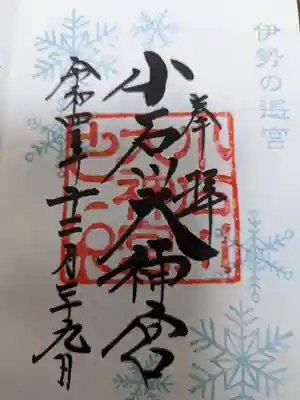 伊勢の遥宮
奉拝
小石川大神宮
令和四年十二月二十九日